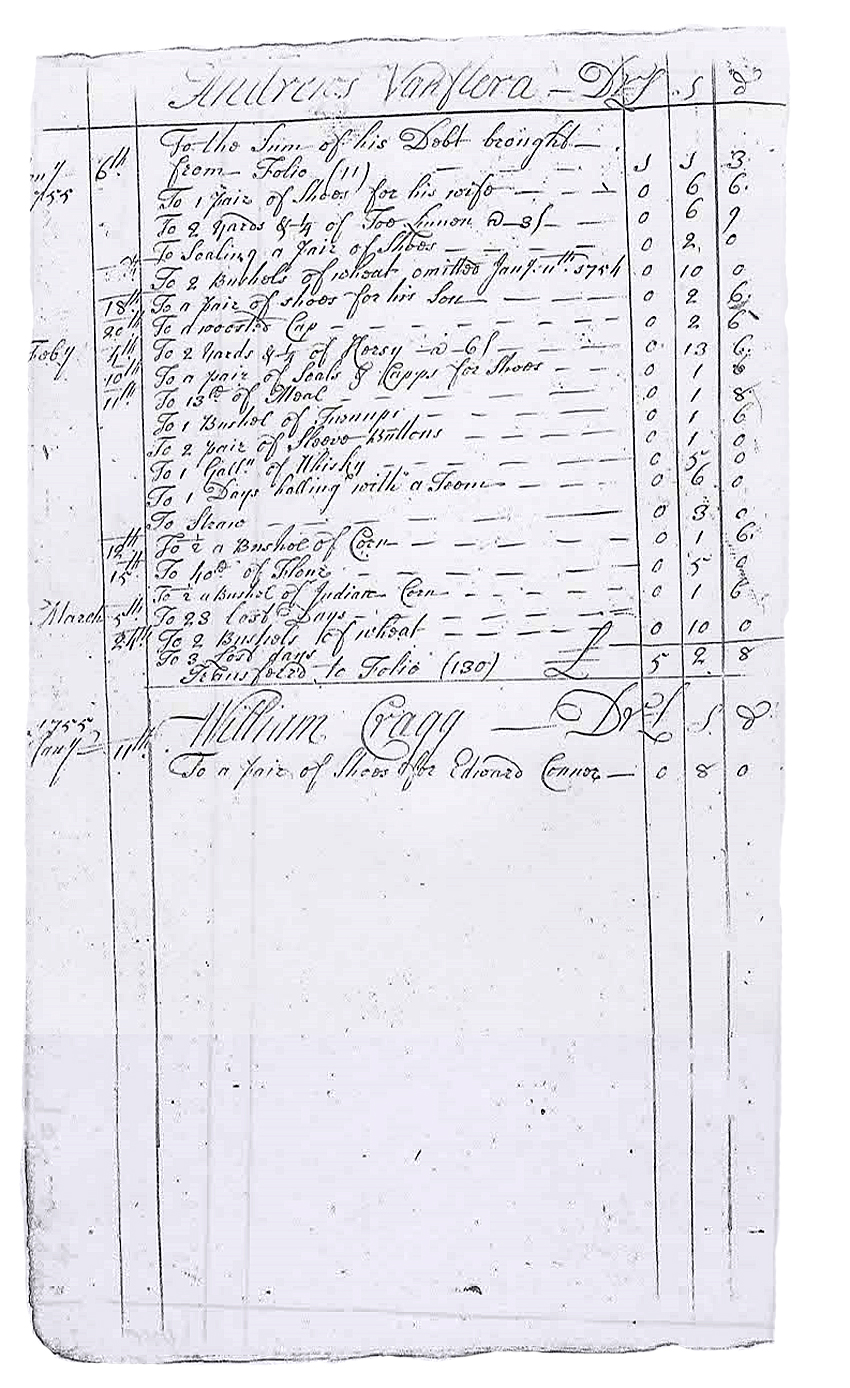 Andrews Vanflera — Dr £ s d
To the Sum of his Debt brought —
Jany 1755 6th from Folio (11) — — — 1 1 3
To 1 pair of Shoes for his wife — — — 0 6 6
To 2 Yards & ¼ of Tow Linnen a 3/ — — 0 6 9
To Soaling a pair of Shoes — — — — 0 2 0
To 2 Bushels of wheat omitted Jany 11th 1754 0 10 0
18th To a pair of shoes for his Son — — — 0 2 6
20th To a woosted Cap — — — — 0 2 6
Feby 4th To 2 Yards & ¼ of Kersy a 6/ — — — 0 13 6
10th To a pair of Soals & Capps for Shoes — — 0 1 6
11th To 13lb of Meal — — — — 0 1 8
To 1 Bushel of Turnups — — — 0 1 6
To 2 pair of Sleeve Buttons — — — 0 1 0
To 1 Galln of Whisky — — — — 0 5 0
To 1 Days halling with a Teem — — — 0 6 0
To Straw — — — — 0 3 0
12th To ½ a Bushel of Corn — — — — 0 1 6
15th To 40lb of Flour — — — — 0 5 0
To ½ a Bushel of Indian Corn — — — 0 1 6
March 5th To 23 lost Days — — — —
24th To 2 Bushels of wheat — — — 0 10 0
To 3 Lost days
Transferd to Folio (130) £ 5 2 8
William Cragg — Dr £ s d
1755 Jany 11th
To a pair of Shoes for Edward Connor — 0 8 0